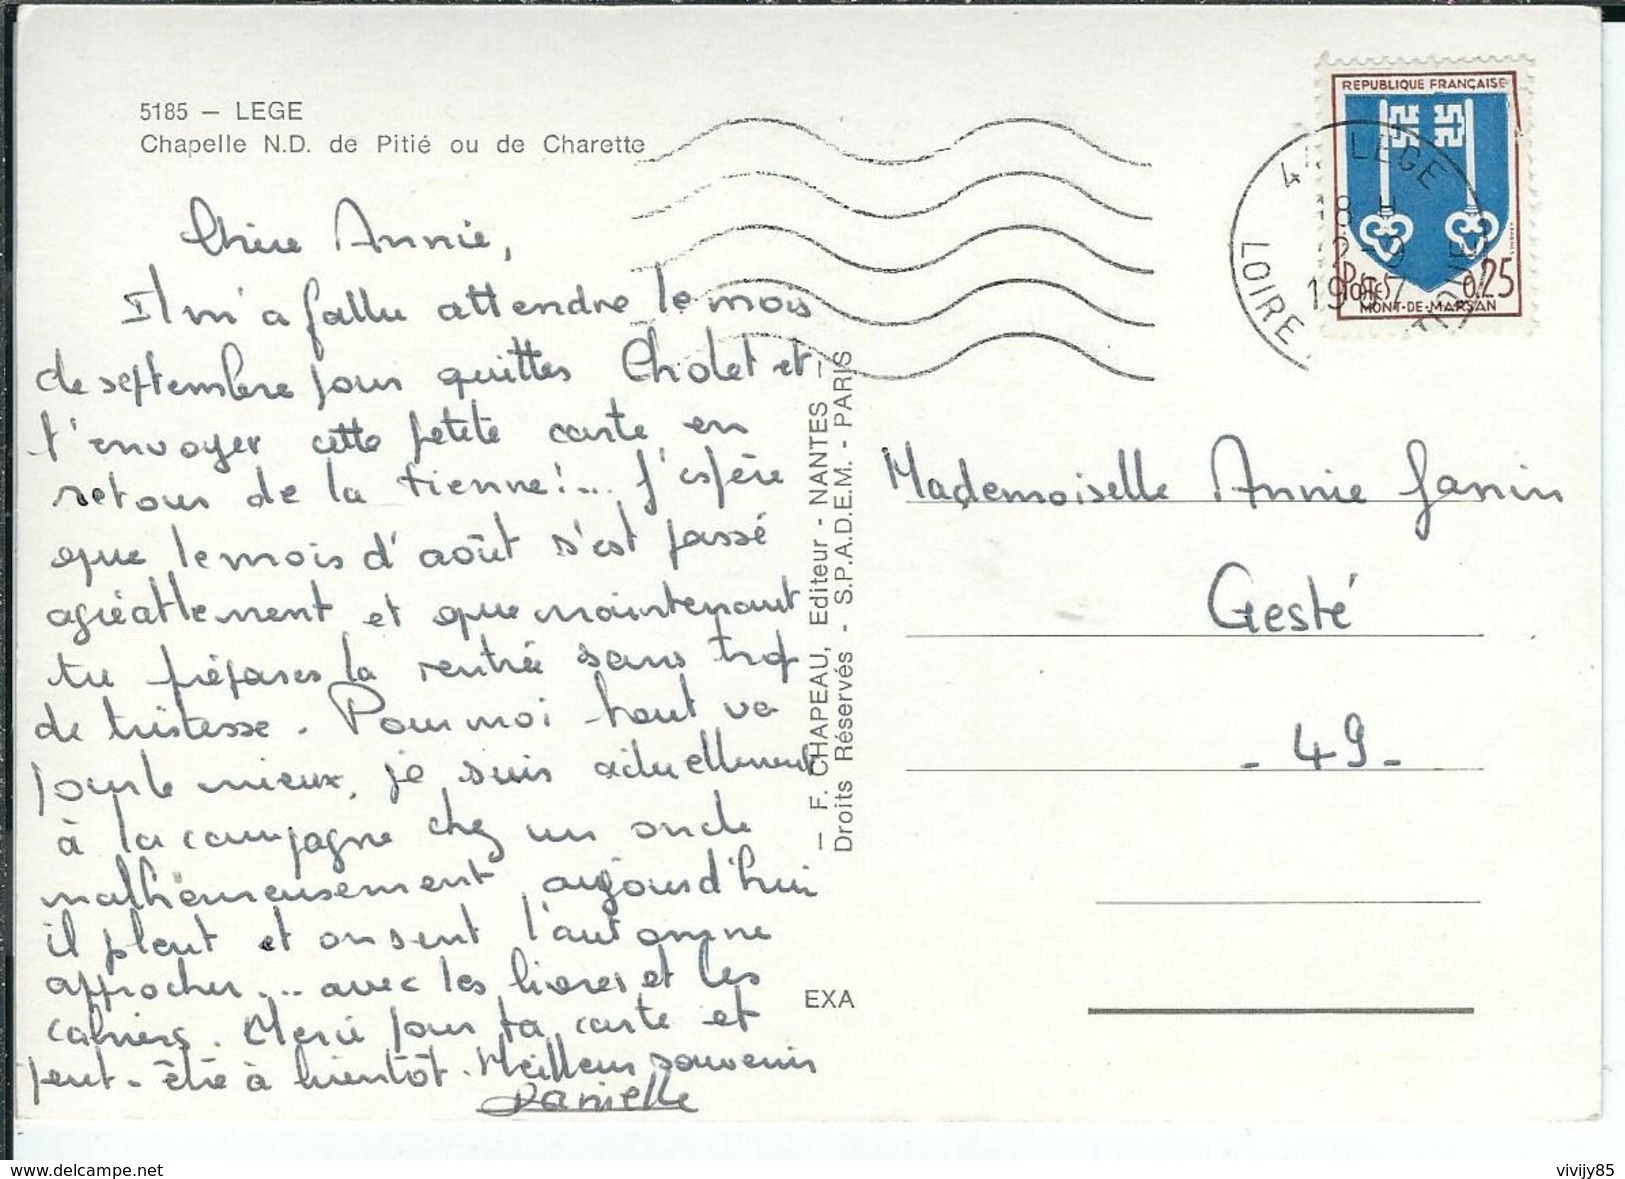 5185 – LEGE
Chapelle N.D. de Pitié ou de Charette
Chère Annie,
Il m'a fallu attendre le mois
de septembre pour quitter Cholet et
t'envoyer cette petite carte en
retour de la tienne!... J'espère
que le mois d'août s'est passé
agréablement et que maintenant
tu prépares la rentrée sans trop
de tristesse. Pour moi tout va
pour le mieux, je suis actuellement
à la campagne chez un oncle
malheureusement aujourd'hui
il pleut et on sent l'automne
approcher... avec les livres et les
cahiers. Merci pour ta carte et
peut-être à bientôt. Meilleur souvenir
Danielle
— F. CHAPEAU, Editeur - NANTES —
Droits Réservés - S.P.A.D.E.M. - PARIS
EXA
REPUBLIQUE FRANÇAISE
POSTES 0,25
MONT-DE-MARSAN
LEGE
18 H
2-9
1967
LOIRE
Mademoiselle Annie Janin
Gesté
- 49 -
www.delcampe.net
vivijy85